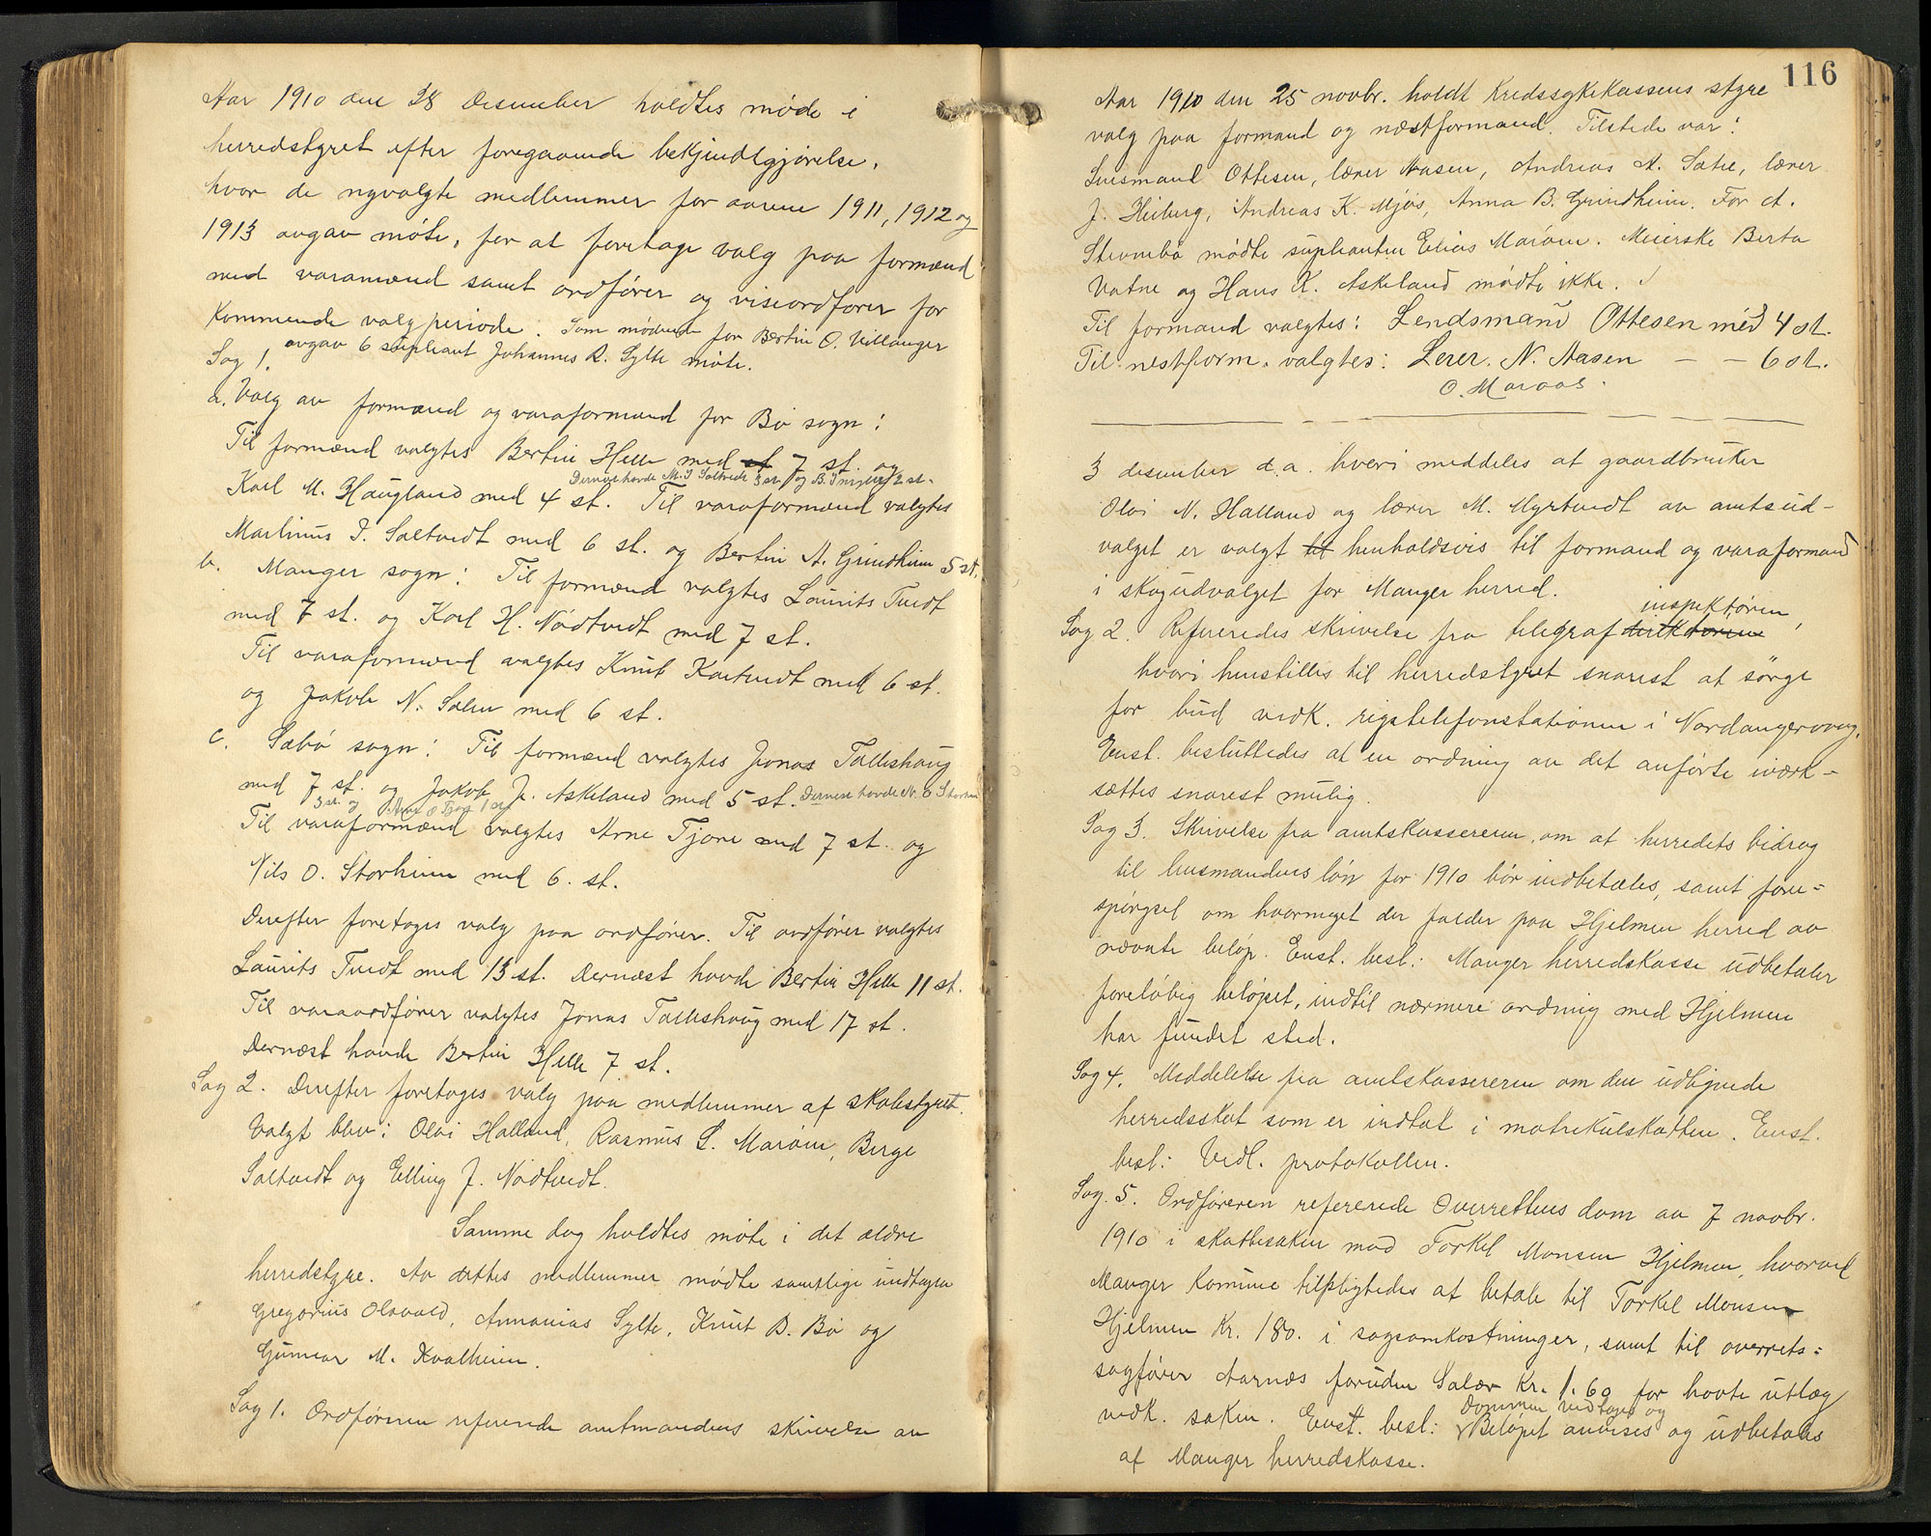 Aar 1910 den 28 Desember holdtes møde i
herredstyret efter foregaaende bekjendtgjørelse,
hvor de nyvalgte medlemmer for aarene 1911, 1912 og
1913 avgav møte, for at foretage valg paa formænd
med varamænd samt ordfører og viseordfører for
kommende valgperiode. Som mødende for Bertin O. Villanger
avgav 6 supleant Johannes R. Sylte møte.
Sag 1.
a. Valg av formænd og varaformænd for Bø sogn:
Til formænd valgtes Bertin Helle med st 7 st. og
Dernæst havde M. I Saltvedt 3 st. og B. 2 st.
Karl M. Haugland med 4 st. Til varaformænd valgtes
Martinus I. Saltvedt med 6 st. og Bertin A. Grindheim 5 st.
b. Manger sogn: Til formænd valgtes Laurits Tvedt
med 7 st. og Karl H. Nödtvedt med 7 st.
Til varaformænd valgtes Knut Kartvedt med 6 st.
og Jakob N. Solem med 6 st.
c. Sæbø sogn: Til formænd valgtes Jonas Talleshaug
med 7 st. og Jakob J. Askeland med 5 st. Dernæst havde N. O Storheim
3 st. og Arne O Tjore 1 st.
Til varaformænd valgtes Arne Tjore med 7 st. og
Nils O. Storheim med 6. st.
Derefter foretoges valg paa ordfører. Til ordfører valgtes
Laurits Tvedt med 13 st. Dernæst havde Bertin Helle 11 st.
Til varaordfører valgtes Jonas Talleshaug med 17 st.
Dernæst havde Bertin Helle 7 st.
Sag 2. Derefter foretoges valg paa medlemmer af skolestyret.
Valgt blev: Olai Halland, Rasmus L. Marøen, Berge
Saltvedt og Elling J. Nødtvedt.
Samme dag holdtes møte i det ældre
herredstyre. Av dettes medlemmer mødte samtlige undtagen
Gregorius Olsvold, Annanias Sylte, Knut B. Bø og
Gunnar M. Kvalheim.
Sag 1. Ordføreren refererede amtmandens skrivelse av
116
Aar 1910 den 25 novbr. holdt Kredssykekassens styre
valg paa formand og næstformand. Tilstede var:
Lensmand Ottesen, lærer Aasen, Andreas A. Sætre, lærer
J. Heiberg, Andreas K. Mjøs, Anna B. Grindheim. For A.
Strømbø mødte supleanten Elias Marøen. Meierske Berta
Vatne og Hans K. Askeland mødte ikke.
Til formand valgtes: Lendsmand Ottesen med 4 st.
Til nestform. valgtes: Lerer. N. Aasen — — 6 st.
O. Maraas.
3 desember d.a. hvori meddeles at gaardbruker
Olai N. Halland og lærer M. Myrtvedt av amtsud-
valget er valgt til henholdsvis til formand og varaformand
i skogudvalget for Manger herred.
inspektøren,
Sag 2. Refereredes skrivelse fra telegraf direktøren
hvori henstilles til herredstyret snarest at sørge
for bud vedk. rigstelefonstationen i Nordangervaag.
Enst. besluttedes at en ordning av det anførte iværk-
sættes snarest mulig.
Sag 3. Skrivelse fra amtskassereren, om at herredets bidrag
til lensmandens løn for 1910 bør indbetales, samt fore-
spørgsel om hvormeget der falder paa Hjelmen herred av
nævnte beløp. Enst. besl.: Manger herredskasse udbetaler
foreløbig beløpet, indtil nærmere ordning med Hjelmen
har fundet sted.
Sag 4. Meddelelse fra amtskassereren om den udlignede
herredsskat som er indtat i matrikulskatten. Enst.
besl: Vedl. protokollen.
Sag. 5. Ordføreren refererede Overrettens dom av 7 novbr.
1910 i skattesaken mod Torkel Monsen Hjelmen, hvorved
Manger komune tilpligtedes at betale til Torkel Monsen
Hjelmen Kr. 180. i sagsomkostninger, samt til overrets-
sagfører Aarnæs foruden Salær Kr. 1.60 for havte utlæg
Dommen vedtages og
vedk. saken. Enst. besl: Beløpet anvises og udbetales
af Manger herredskasse.